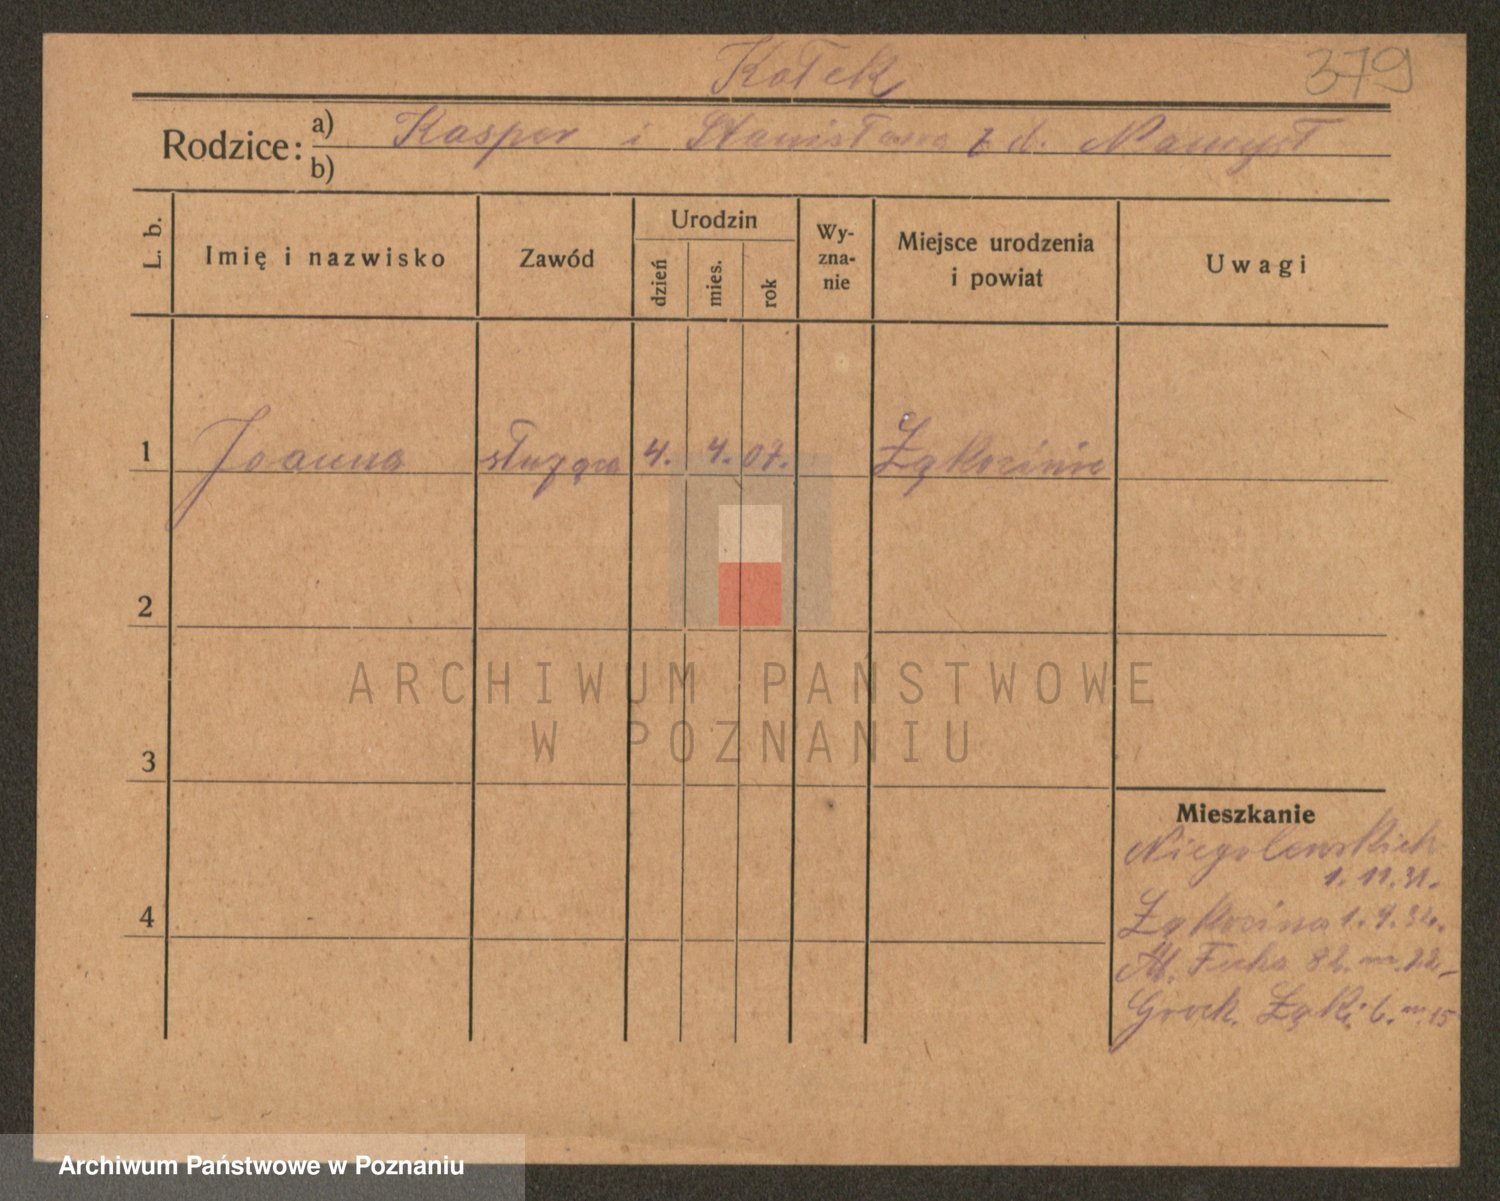 Kołek
379
Rodzice: a) Kasper i Stanisława z d. Nawrot
b)
L. b.
Imię i nazwisko
Zawód
Urodzin
dzień
mies.
rok
Wy-
zna-
nie
Miejsce urodzenia
i powiat
Uwagi
1 Joanna służąca 4. 4. 07.
2
3
4
Mieszkanie
Niegolewskich
1. 11. 31.
1. 9. 32.
M. Focha 82. m. 22
Groch. Łąki 6. m. 15
ARCHIWUM PAŃSTWOWE
W POZNANIU
Archiwum Państwowe w Poznaniu